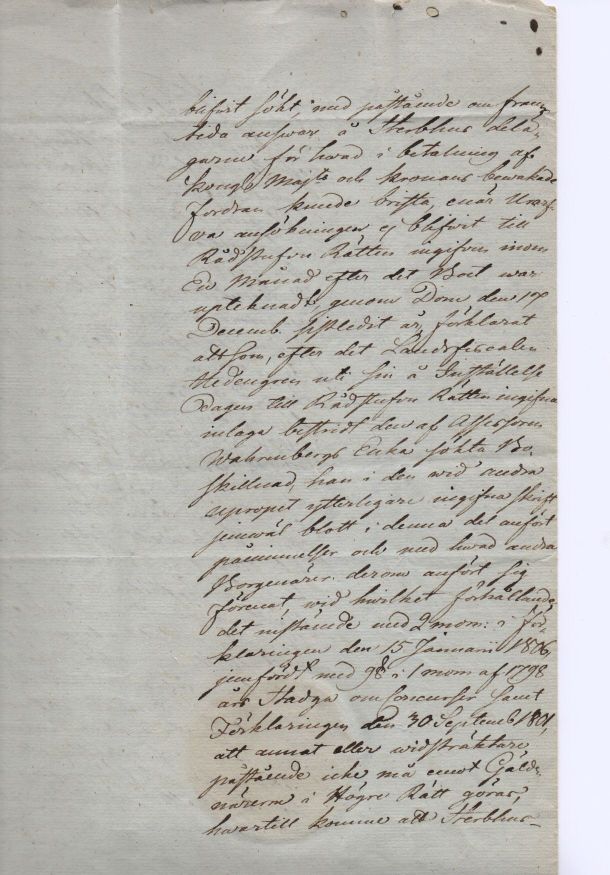 blifvit sökt, med påstående om fram-
tida answar å Sterbhus delä-
garne för hwad i betalning af
Kongl Majts och Kronans bewakade
fordran kunde brista, enär Urarf-
va ansökningen ej blifvit till
Rådstufvu Rätten ingifven inom
En Månad efter det Boet war
upteknadt genom Dom den 17
Decemb. sistledit år, förklarat
att som, efter det Landsfiscalen
Hedengren uti sin å Inställelse
Dagen till Rådstufvu Rätten ingifna
inlaga bestridt den af Assessoren
Wahrenbergs Enka sökta Bo-
skillnad, han i den wid andra
upropet ytterligare ingifna skrift
jemwäl blott i denna del anfört
påminnelser och med hwad andra
Borgenärer derom anfört sig
förenat, wid hwilket förhållande
det påstående med 2 mom: i För-
klaringen den 15 Januarii 1806,
jemfördt med 9 § i 1 mom af 1798
års Stadga om Concurser samt
Förklaringen den 30 Septemb 1801
att annat eller widsträktare
påstående icke må emot Gälde-
nären i Högre Rätt göras,
hwartill komme att Sterbhus-